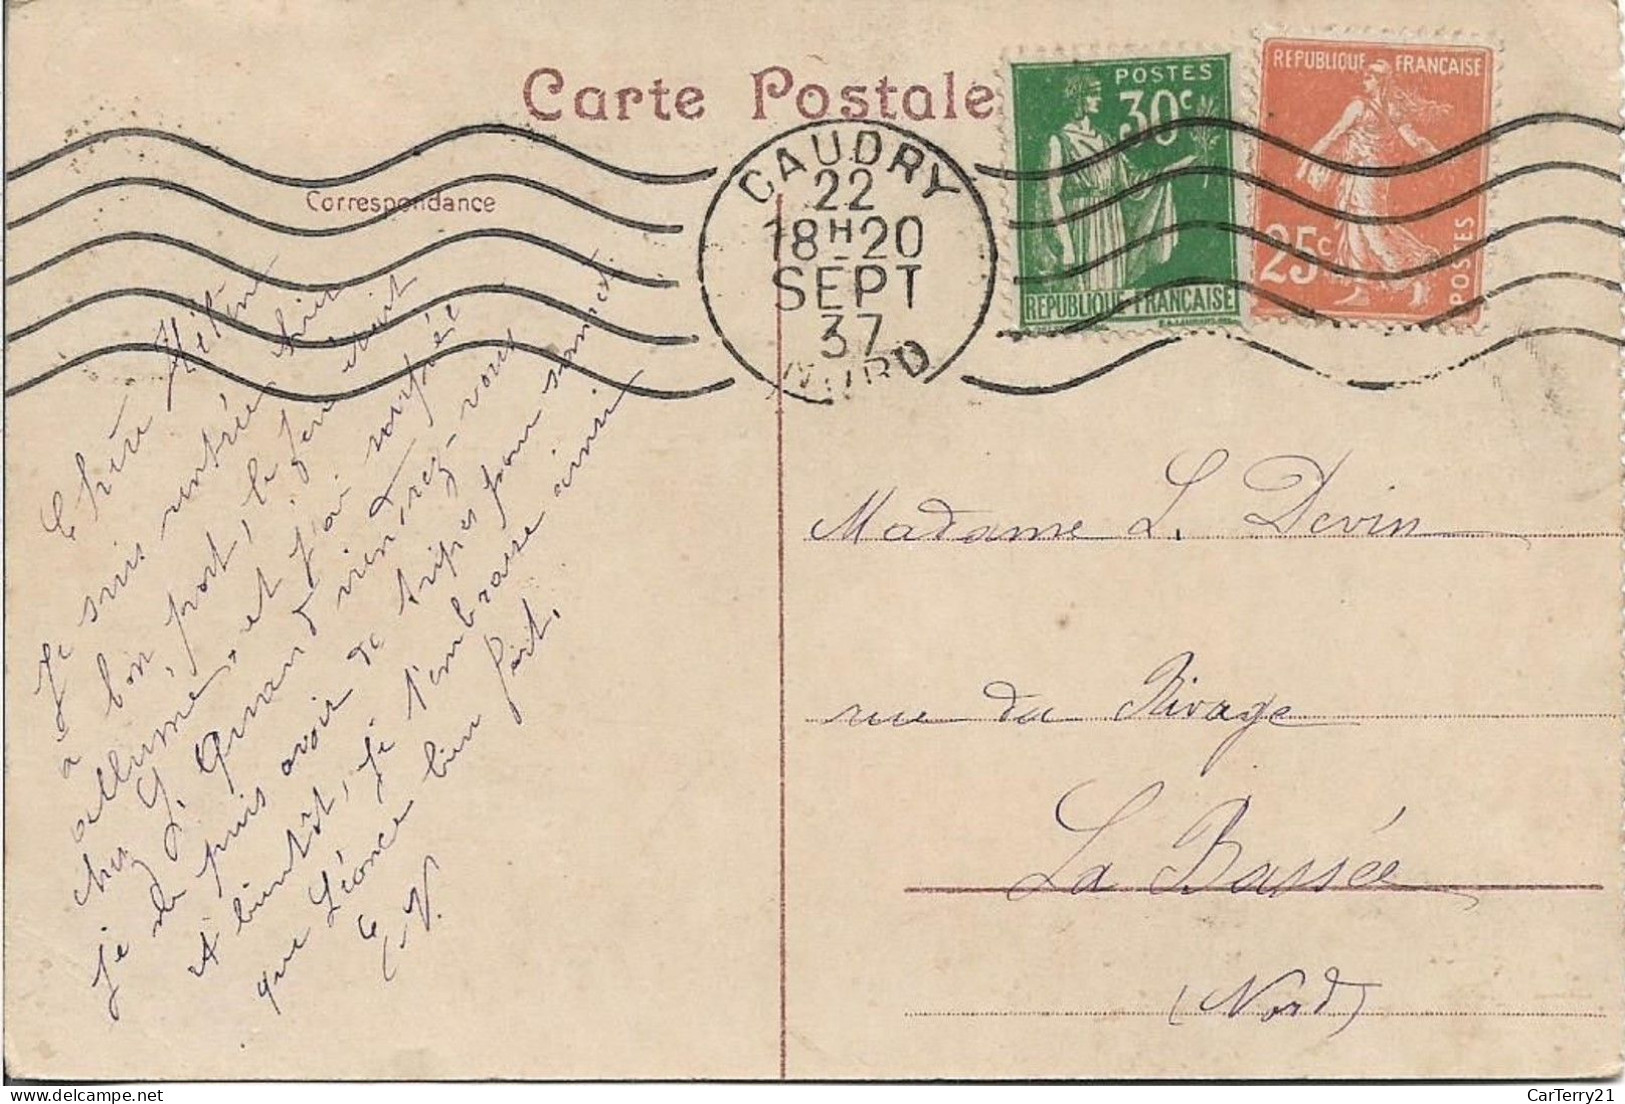 Carte Postale
Correspondance
CAUDRY
22
18H20
SEPT
37
NORD
POSTES
30c
REPUBLIQUE FRANÇAISE
REPUBLIQUE FRANÇAISE
25c
POSTES
Chère Hélène
Je suis rentrée hier
à bon port, le feu était
allumé, et j'ai soupée
chez G. Quand viendrez-vous
je ne puis avoir de tripes pour samedi
A bientôt, je t'embrasse ainsi
que Léonce bien fort.
V.
Madame L. Devin
rue du Rivage
La Bassée
(Nord)
CarTerry21